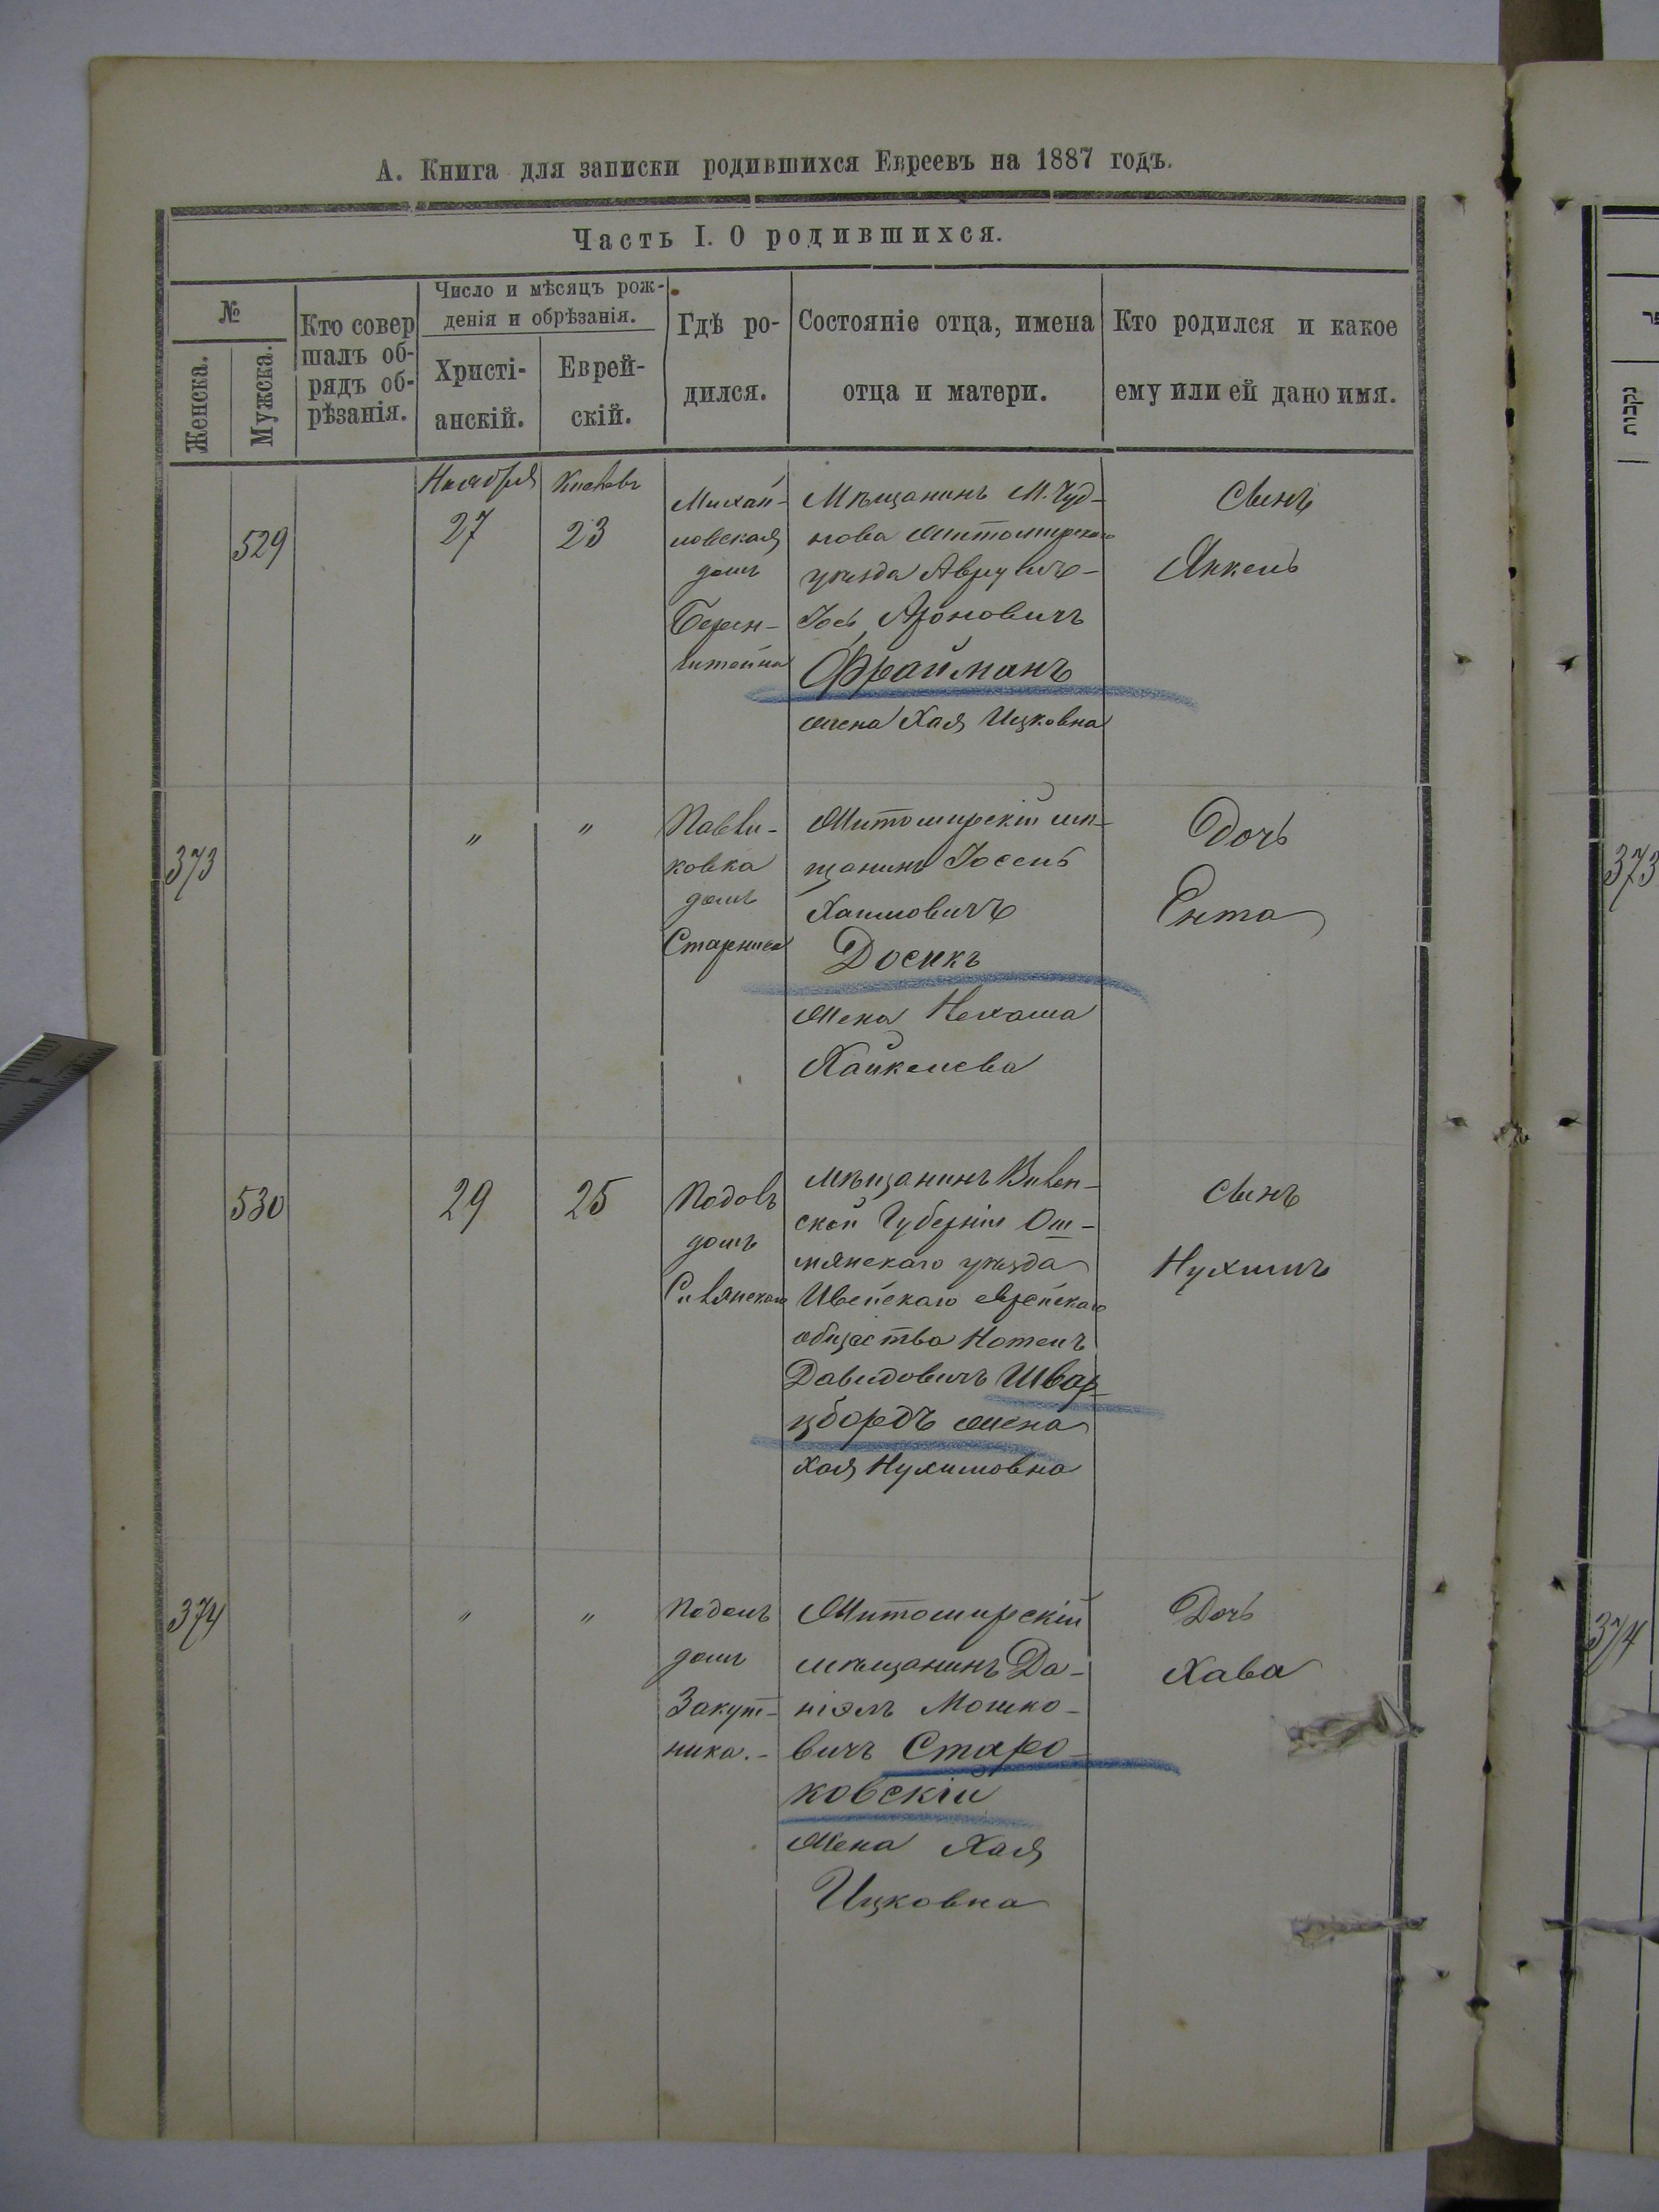 А. Книга для записки родившихся Евреевъ на 1887 годъ.
Часть I. О родившихся.
№
Женска.
Мужска.
Кто совер
шалъ об-
рядъ об-
рѣзанія.
Число и мѣсяцъ рож-
денія и обрѣзанія.
Христі-
анскій.
Еврей-
скій.
Гдѣ ро-
дился.
Состояніе отца, имена
отца и матери.
Кто родился и какое
ему или ей дано имя.
529
Ноября
27
Кислевъ
23
Михай-
ловская
домъ
Берен-
штейна
Мѣщанинъ М. Чуд-
нова Житомирскаго
уѣзда Аврумъ-
Іось Ароновичъ
Фрайманъ
жена Хая Ицковна
Сынъ
Янкель
373
"
"
Павли-
ковка
домъ
Житомирскій мѣ-
щанинъ Іосель
Хаимовичъ
Досикъ
Жена Нехама
Хайкелева
Дочь
Ента
530
29
25
Подолъ
домъ
Мѣщанинъ Вилен-
ской Губерніи Ош-
мянскаго уѣзда
Ивейскаго еврейскаго
общества Нотель
Давидовичъ Швар-
цбордъ жена
Хая Нухимовна
Сынъ
Нухимъ
374
"
"
Подолъ
домъ
Закут-
ника.-
Житомирскій
мѣщанинъ Да-
ніэль Мошко-
вичъ Старо-
ковскій
Жена Хая
Ицковна
Дочь
Хава
נקבות
373
374